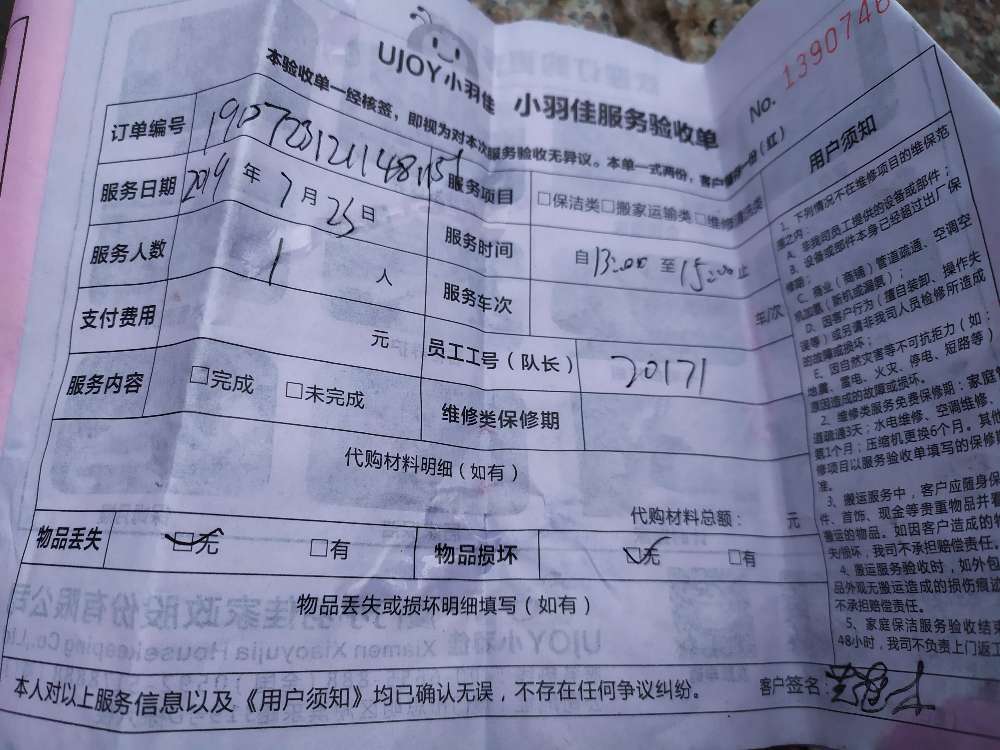 UJOY小羽佳 小羽佳服务验收单
No. 1390746
本验收单一经核签，即视为对本次服务验收无异议。本单一式两份，客户
订单编号
服务项目 □保洁类□搬家运输类□维修
服务日期 2019 年 7 月 25 日
服务时间 自 13:00 至 15:00 止
服务人数 1 人
服务车次 车/次
支付费用 元
员工工号（队长） 20171
服务内容 □完成 □未完成
维修类保修期
代购材料明细（如有）
代购材料总额： 元
物品丢失 □无 □有 物品损坏 □无 □有
物品丢失或损坏明细填写（如有）
本人对以上服务信息以及《用户须知》均已确认无误，不存在任何争议纠纷。 客户签名：
用户须知
1、下列情况不在维修项目的维保范
围之内：
A、非我司员工提供的设备或部件；
B、设备或部件本身已经超过出厂保
修期；
C、商业（商铺）管道疏通、空调空
机加氨（新机或漏氨）；
D、因客户行为（擅自装卸、操作失
误等）或另请非我司人员检修所造成
的故障或损坏；
E、因自然灾害等不可抗拒力（如：
地震、雷电、火灾、停电、短路等）
意图造成的故障或损坏。
2、维修类服务免费保修期：家庭管
道疏通3天；水电维修、空调维修、
氨1个月；压缩机更换6个月。其他
修项目以服务验收单填写的保修期
准。
3、搬运服务中，客户应随身保
件、首饰、现金等贵重物品并看
搬运的物品。如因客户造成的物
失/损坏，我司不承担赔偿责任。
4、搬运服务验收时，如外包
品外观无搬运造成的损伤痕迹
不承担赔偿责任。
5、家庭保洁服务验收结束
48小时，我司不负责上门返工